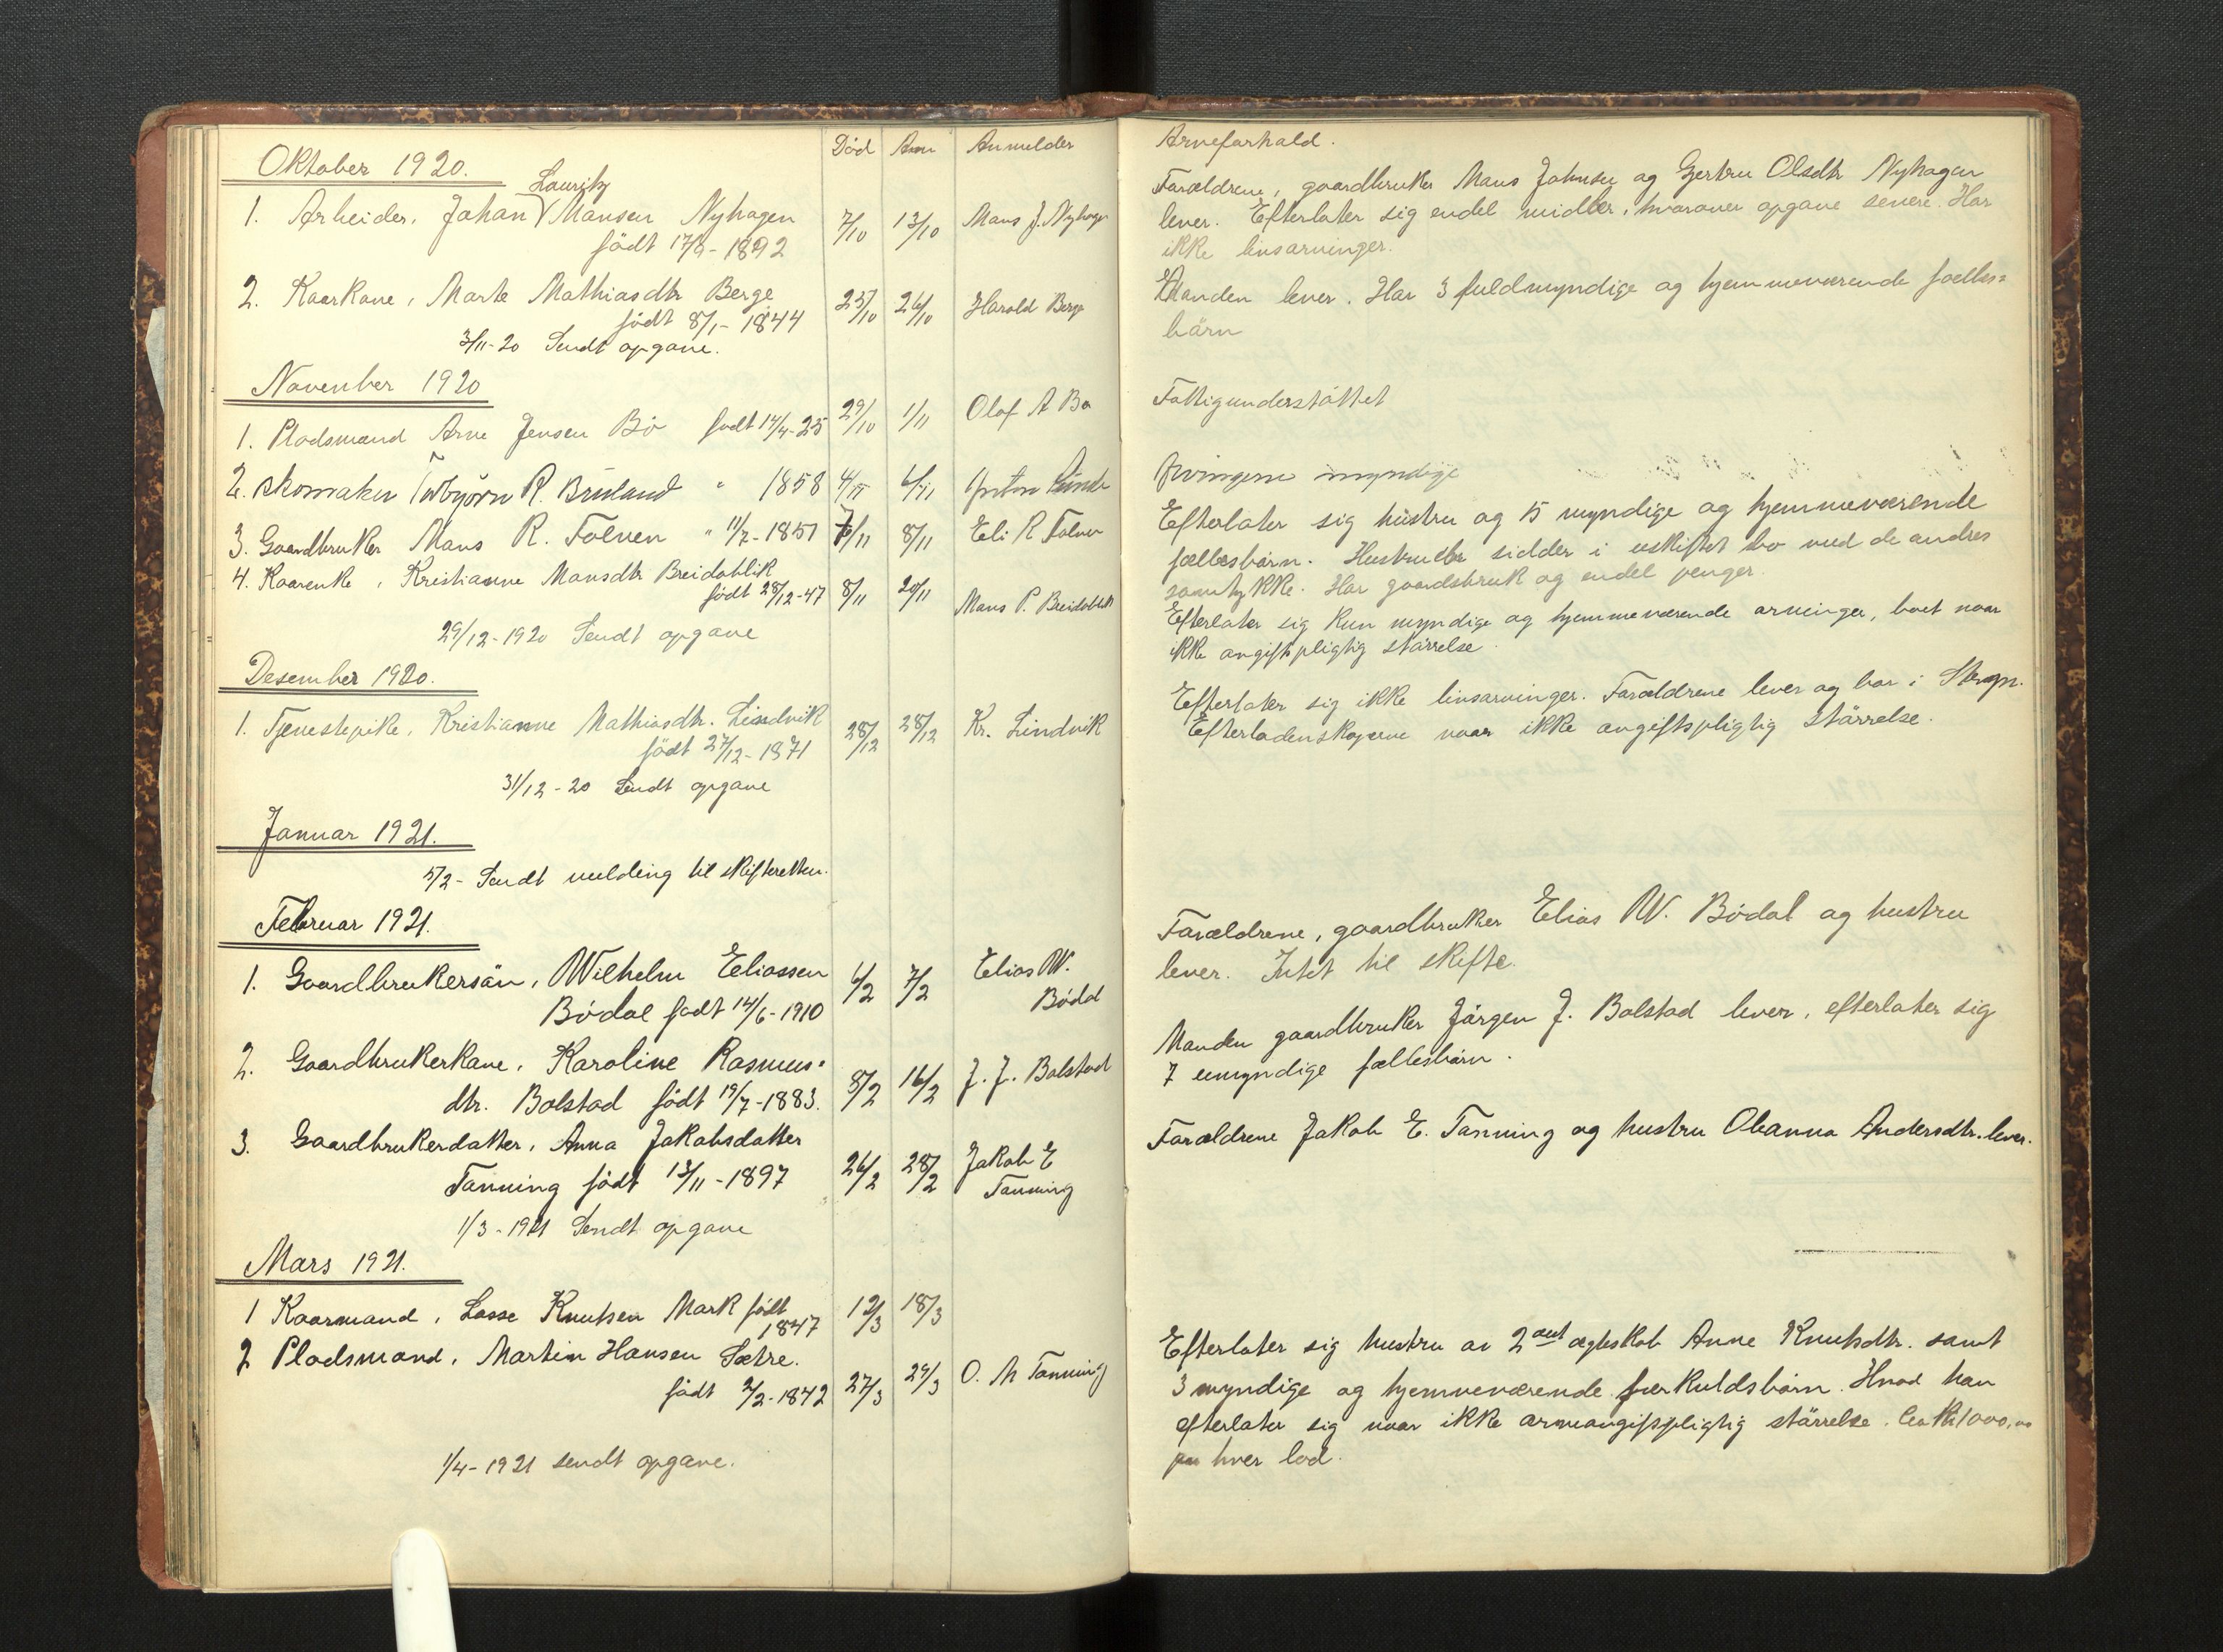 Död Anm Anmelder
Oktober 1920.
Lauritz
1. Arbeider, Johan V Mansen Nyhagen 7/10 13/10 Mans J. Nyhagen
födt 17/9-1892
2. Kaarkone, Marte Mathiasdtr Berge 23/10 26/10 Harald Berge
födt 8/1-1844
3/11-20 Sendt opgave.
November 1920
1. Pladsmand Arne Jensen Bö födt 14/4-25 29/10 1/11 Olaf A Bö
2. Skomaker Torbjörn R. Bruland " 1858 4/11 6/11 Anton Sunde
3. Gaardbruker Mons R. Folven " 11/7-1851 7/11 8/11 Eli R Folven
4. Kaarenke, Kristianne Monsdtr Breidablik
födt 28/12-47 8/11 20/11 Mons P. Breidablik
29/12-1920 Sendt opgave
Desember 1920.
1. Tjenestepike, Kristianne Mathiasdtr. Lindvik 28/12 28/12 Kr. Lindvik
födt 27/12-1871
31/12-20 Sendt opgave
Januar 1921.
5/2- Sendt melding til skifteretten.
Februar 1921.
1. Gaardbrukersön, Wilhelm Eeliassen 6/2 7/2 Elias W.
Bödal födt 14/6-1910 Bödal
2. Gaardbrukerkone, Karoline Rasmus-
dtr. Bolstad födt 19/7-1883. 8/2 16/2 J. J. Bolstad
3. Gaardbrukerdatter, Anna Jakobsdatter
Tonning födt 13/11-1897 26/2 28/2 Jakob E
Tonning
1/3-1921 Sendt opgave
Mars 1921.
1 Kaarmand, Lasse Knutsen Mark födt 12/3 18/3
1847
2 Pladsmand, Martin Hansen Sætre.
födt 2/2-1842 27/3 29/3 O. M Tonning
1/4-1921 sendt opgave.
Arveforhold.
Forældrene, gaardbruker Mans Johnsen og Gjertru Olsdtr Nyhagen
lever. Efterlater sig endel midler, hvorover opgave senere. Har
ikke livsarvinger.
Manden lever. Har 3 fuldmyndige og hjemmeværende fælles=
börn
Fattigunderstöttet
Arvingerne myndige
Efterlater sig hustru og 5 myndige og hjemmeværende
fællesbörn. Hustruen sidder i uskiftet bo med de andres
samtykke. Har gaardsbruk og endel penger.
Efterlater sig kun myndige og hjemmeværende arvinger, boet naar
ikke avgiftspligtig störrelse.
Efterlater sig ikke livsarvinger. Forældrene lever og bor i Stryn.
Efterladenskapene naar ikke avgiftspligtig störrelse.
Forældrene, gaardbruker Elias W. Bödal og hustru
lever. Intet til skifte.
Manden gaardbruker Jörgen J. Bolstad lever, efterlater sig
7 umyndige fællesbörn.
Forældrene Jakob E. Tonning og hustru Oleanna Andersdtr. lever.
Efterlater sig hustru av 2det ægteskab Anne Knutsdtr. samt
3 myndige og hjemmeværende særkuldsbörn. Hvad han
efterlater sig naar ikke arveavgiftspligtig störrelse. Ca Kr 1000,00
paa hver lod.